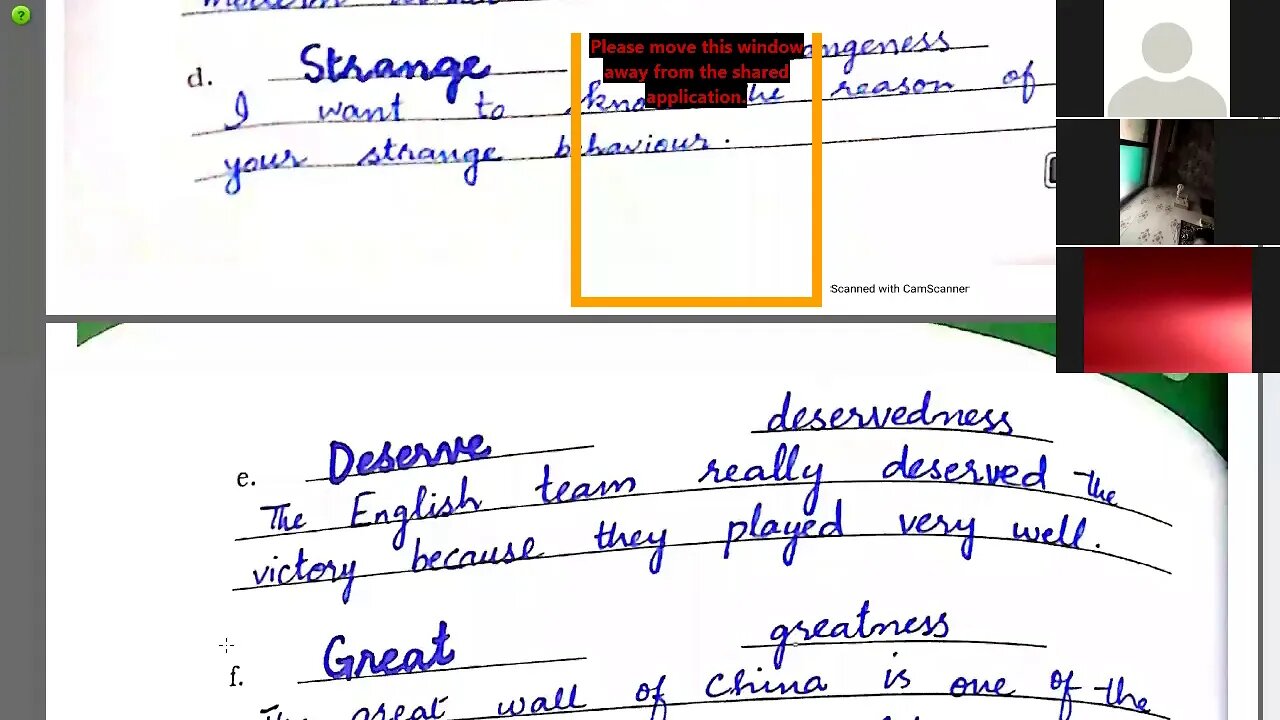 ?
d. Strange
Please move this window
away from the shared
application.
I want to the reason of
your strange behaviour.
Scanned with CamScanner
e. Deserve deservedness
The English team really deserved the
victory because they played very well.
f. Great greatness
The great wall of China is one of the